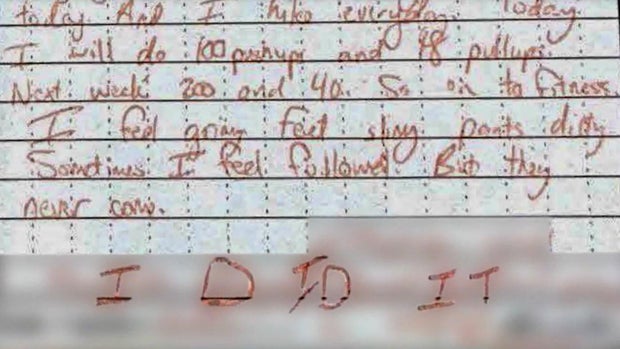 today. And I hate everything. Today
I will do 100 pushups and 48 pullups.
Next week 200 and 40. So on to fitness.
I feel grimy feel slimy pants dirty
Sometimes I feel followed But they
never come.
I D I/D IT